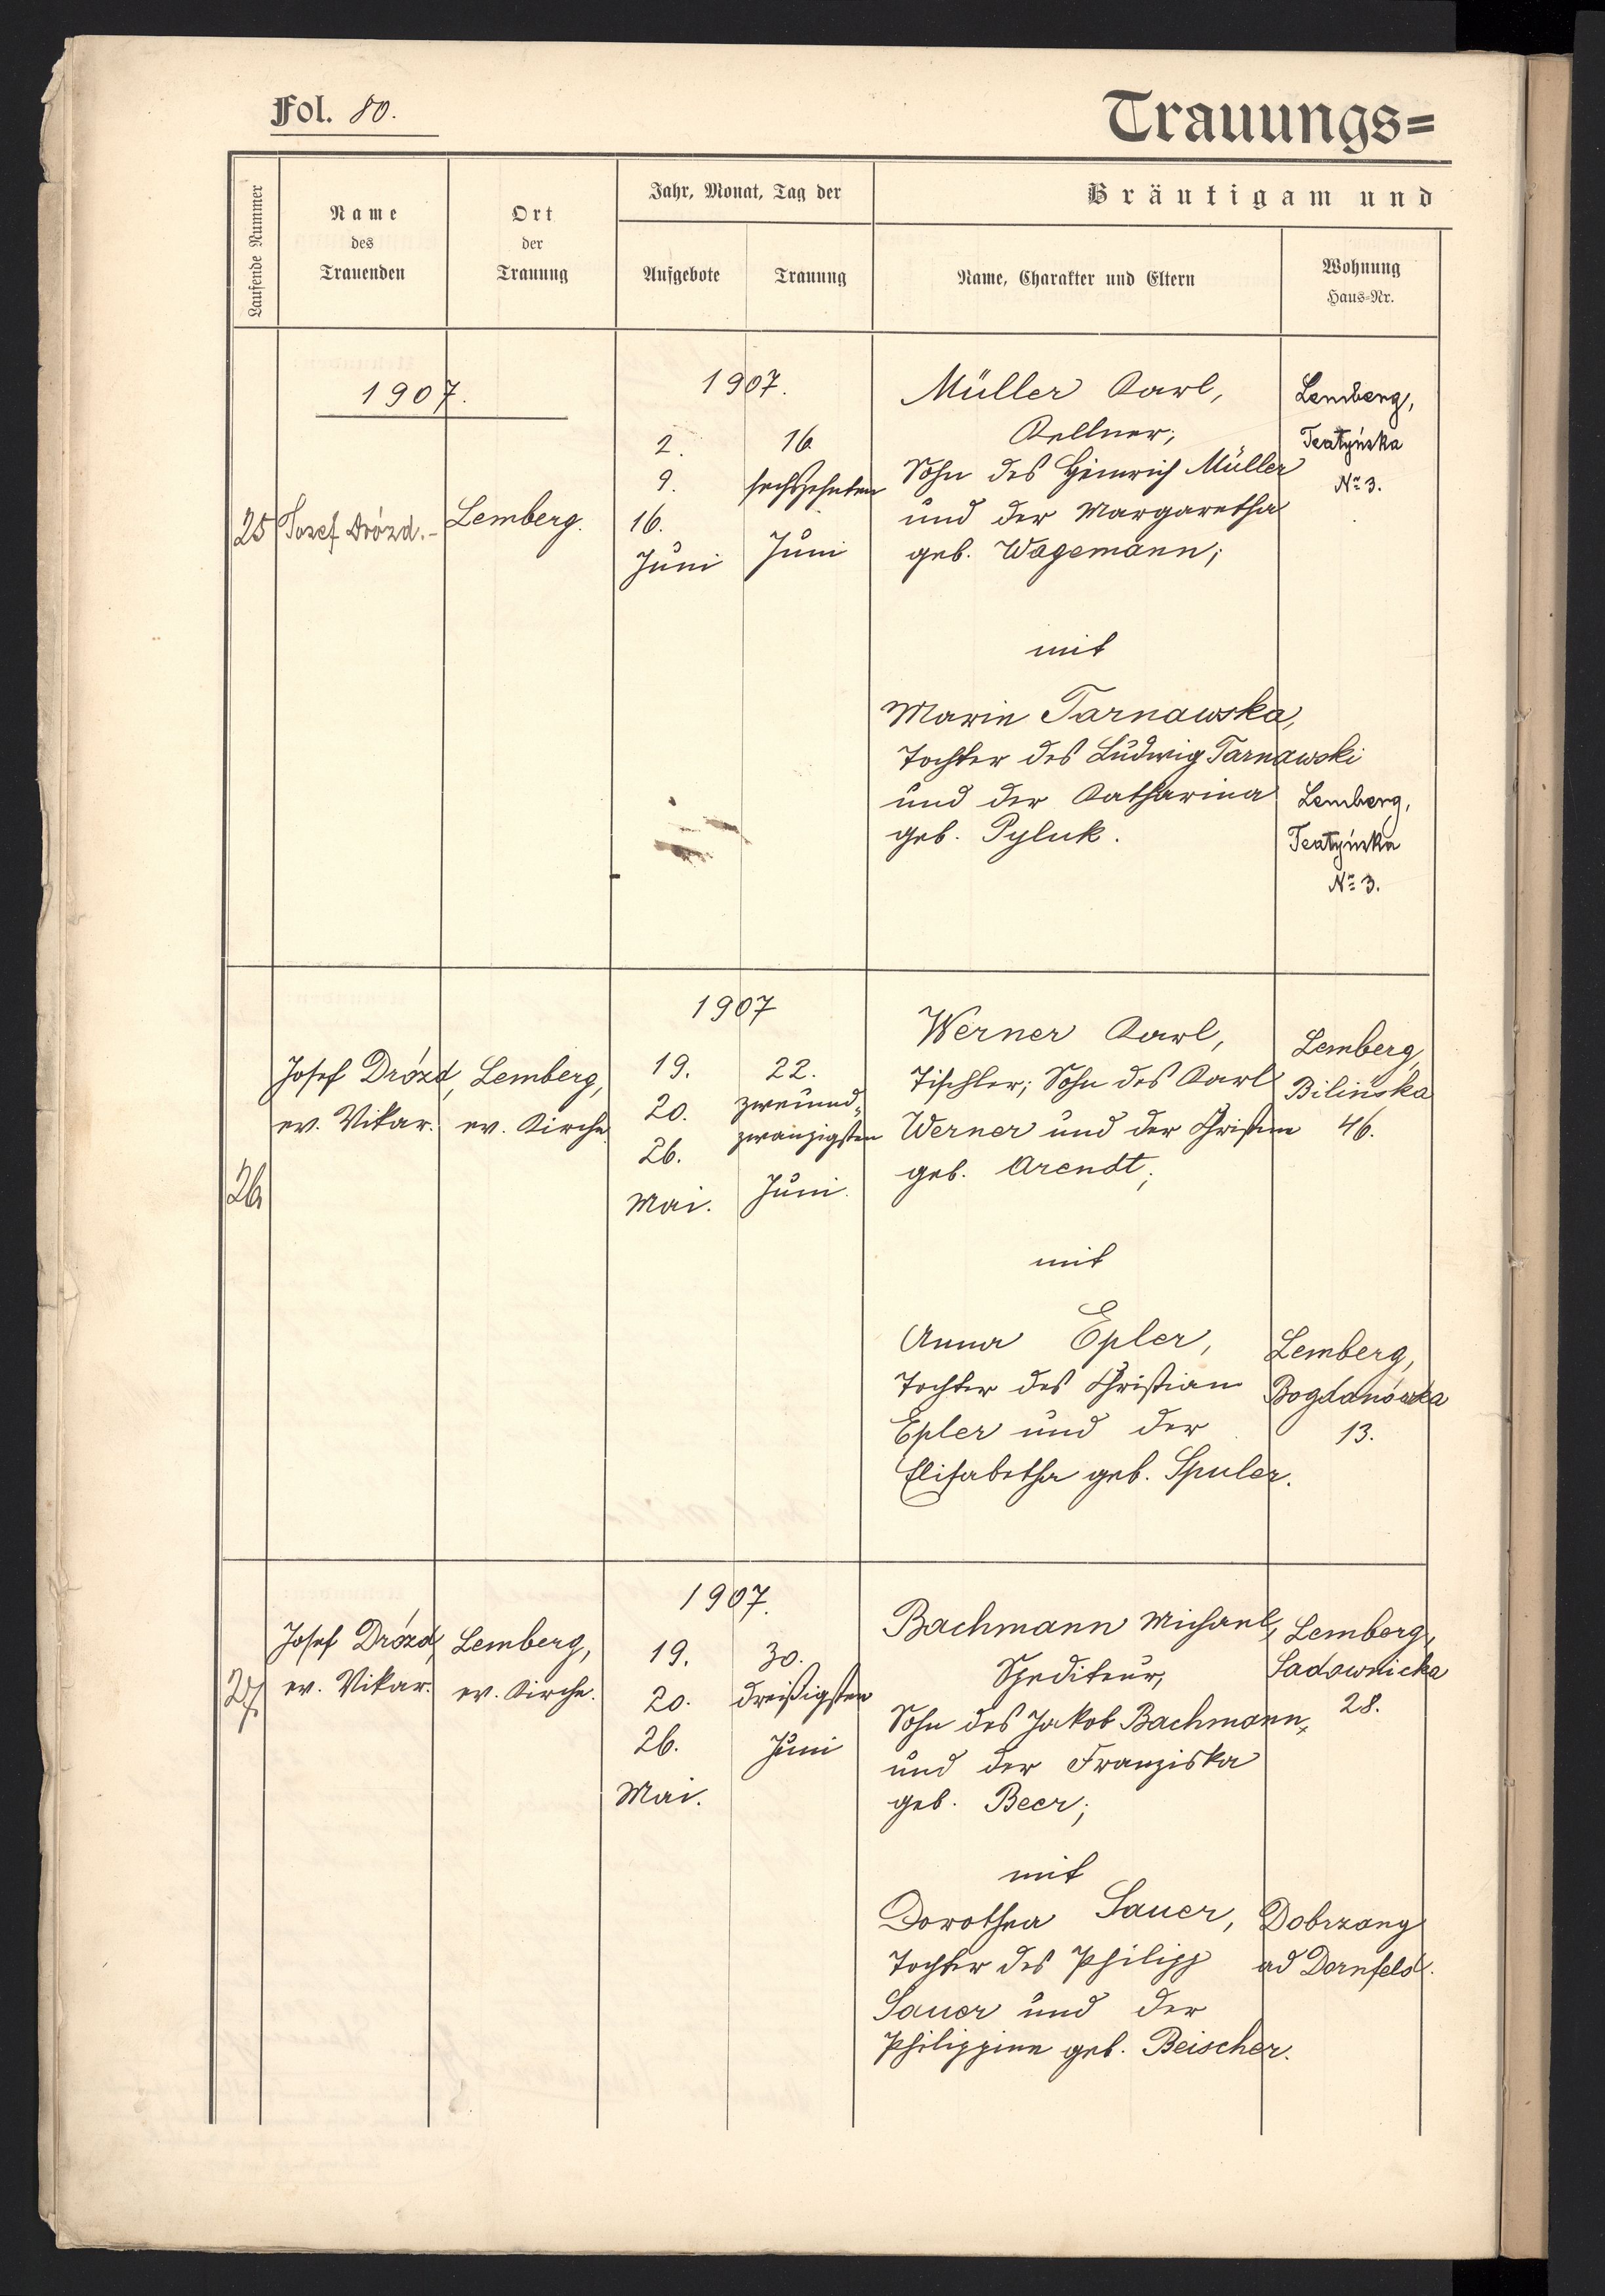 Fol. 80.
Trauungs=
Laufende Nummer
Name
des
Trauenden
Ort
der
Trauung
Jahr, Monat, Tag der
Aufgebote
Trauung
Bräutigam und
Name, Charakter und Eltern
Wohnung
Haus-Nr.
1907.
25
Josef Drózd.-
Lemberg.
1907.
2.
9.
16.
Juni
16.
sechszehnten
Juni
Müller Karl,
Kellner;
Sohn des Heinrich Müller
und der Margaretha
geb. Wagemann;
Lemberg,
Teatyńska
№ 3.
mit
Marie Tarnawska,
Tochter des Ludwig Tarnawski
und der Katharina
geb. Pyluk.
Lemberg,
Teatyńska
№ 3.
26
Josef Drózd,
ev. Vikar.
Lemberg,
ev. Kirche
1907
19.
20.
26.
Mai.
22.
zweiund-
zwanzigsten
Juni.
Werner Karl,
Tischler; Sohn des Karl
Werner und der Christine
geb. Arendt;
Lemberg,
Bilinska
46.
mit
Anna Epler,
Tochter des Christian
Epler und der
Elisabetha geb. Spuler.
Lemberg,
Bogdanówka
13.
27
Josef Drózd,
ev. Vikar.
Lemberg,
ev. Kirche.
1907.
19.
20.
26.
Mai.
30.
dreißigsten
Juni
Bachmann Michael,
Spediteur,
Sohn des Jakob Bachmann,
und der Franziska
geb. Beer;
Lemberg,
Sadownicka
28.
mit
Dorothea Sauer,
Tochter des Philipp
Sauer und der
Philippine geb. Beischer.
Dobrzany
ad Dornfeld.